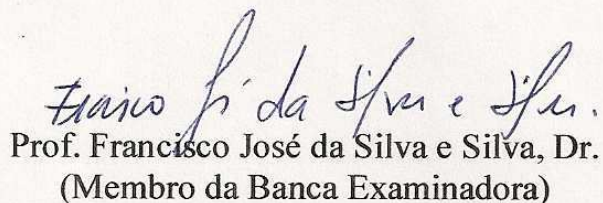 Francisco José da Silva e Silva.
Prof. Francisco José da Silva e Silva, Dr.
(Membro da Banca Examinadora)